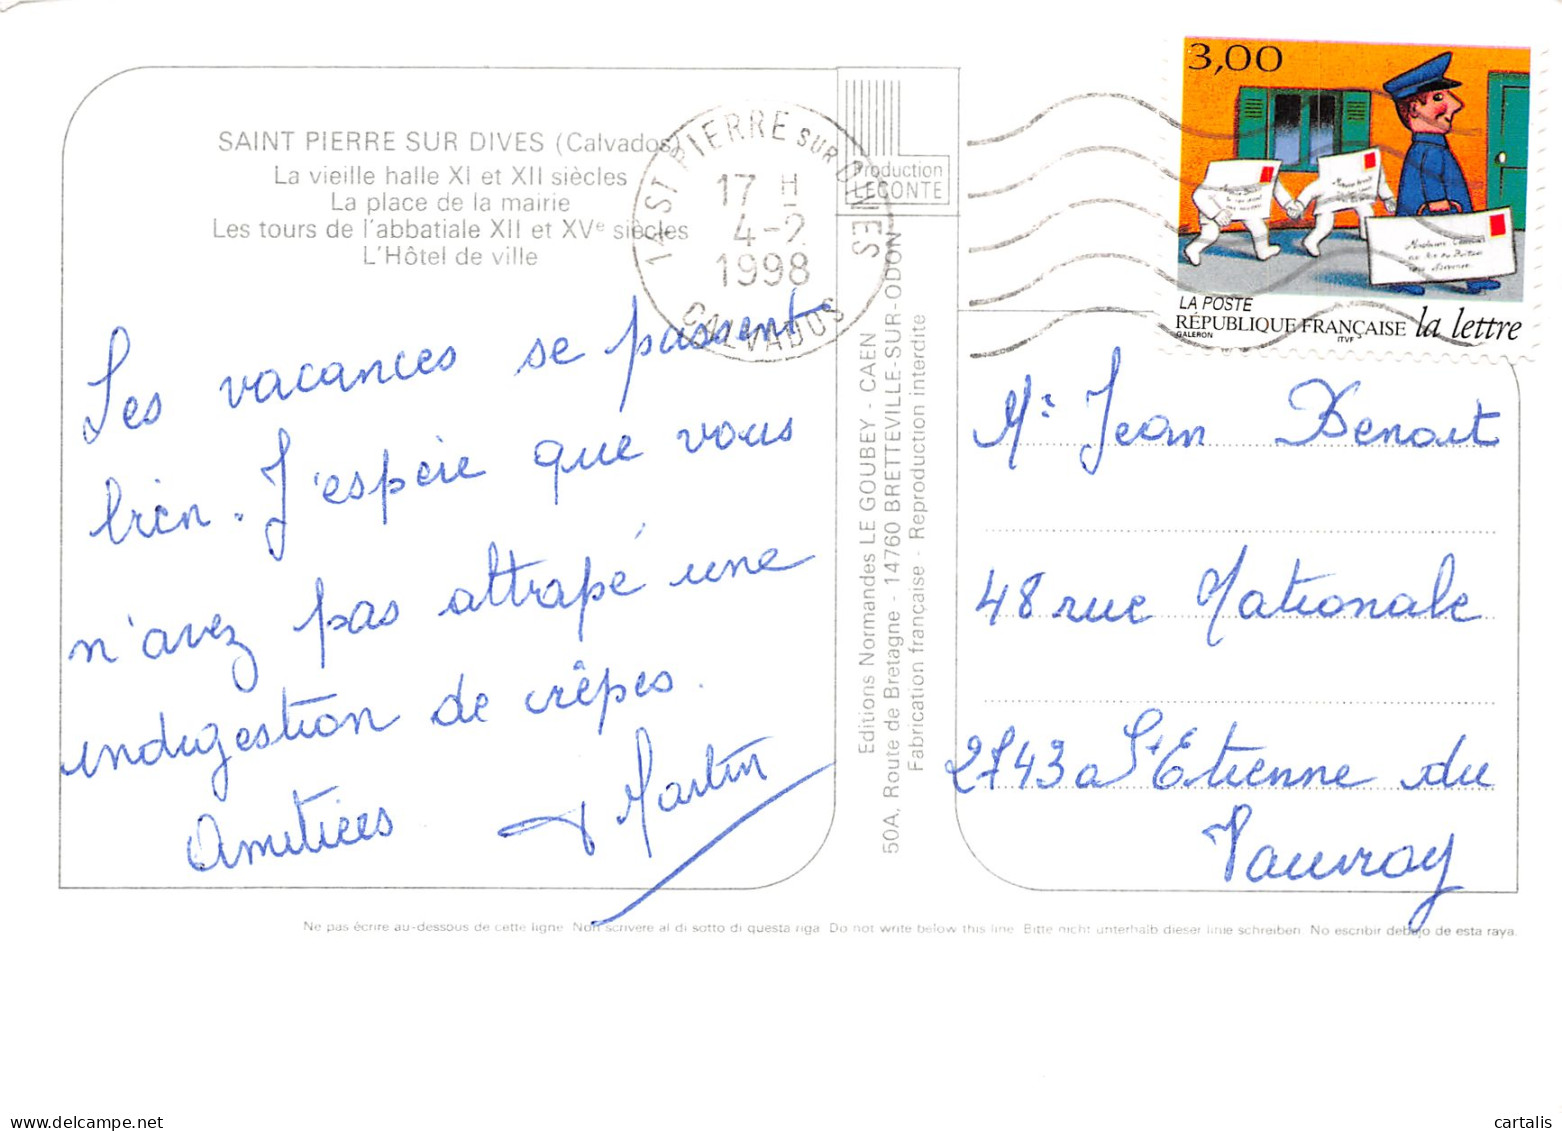 SAINT PIERRE SUR DIVES (Calvados)
La vieille halle XI et XII siècles
La place de la mairie
Les tours de l'abbatiale XII et XVe siècles
L'Hôtel de ville
14-ST PIERRE SUR DIVES
17 H
4-2
1998
CALVADOS
Production
LECONTE
3,00
LA POSTE
RÉPUBLIQUE FRANÇAISE la lettre
GALERON
ITVF
Les vacances se passent
bien. J'espère que vous
n'avez pas attrapé une
indigestion de crêpes.
Amitiées Martin
Editions Normandes LE GOUBEY - CAEN
50A, Route de Bretagne - 14760 BRETTEVILLE-SUR-ODON
Fabrication française - Reproduction interdite
Mr Jean Benoit
48 rue Nationale
27430 St Etienne du
Vauvray
Ne pas écrire au-dessous de cette ligne. Non scrivere al di sotto di questa riga. Do not write below this line. Bitte nicht unterhalb dieser linie schreiben. No escribir debajo de esta raya.
cartalis